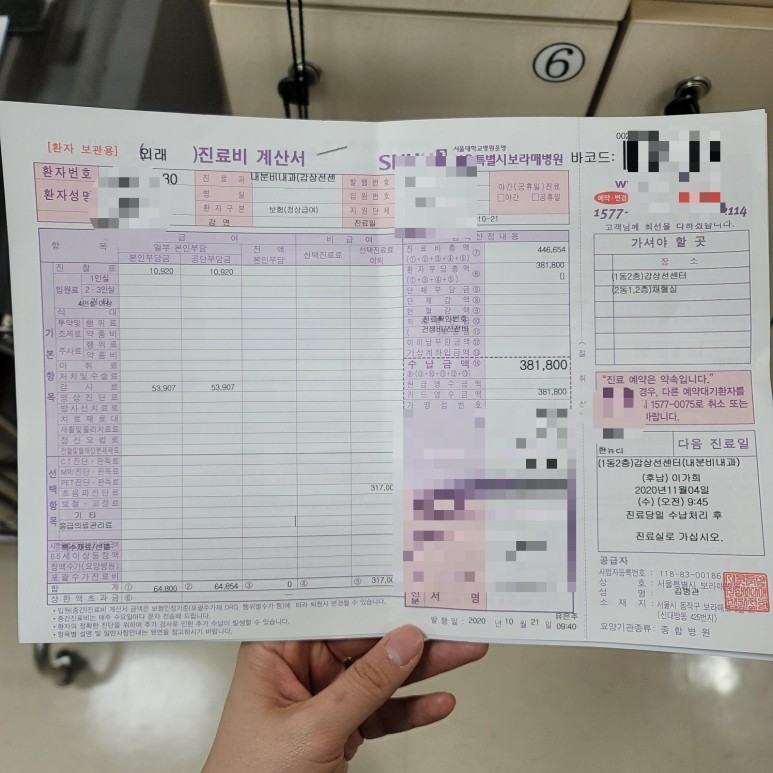 6
[환자 보관용] (외래 )진료비 계산서
서울대학교병원운영
특별시보라매병원 바코드:
환자번호 30 진 료 과 내분비내과(갑상선센 발 행 번 호 야간(공휴일)진료
병 실 입 원 번 호 □야간 □공휴일
환자성명 환 자 구 분 보험(정상급여) 지 원 단 체
감 면 진료일 10-21
예약·변경
1577- 2114
고객님께 최선을 다하겠습니다.
가셔야 할 곳
장 소
(1동2층)갑상선센터
(2동1,2층)채혈실
항 목 급 여 비 급 여
일부 본인부담 전 액 본인부담 선택진료료 선택진료료 이외
본인부담금 공단부담금
진 찰 료 10,920 10,920
입원료 1인실
2·3인실
식 대
투약및 행 위 료
조제료 약 품 비
주사료 행 위 료
약 품 비
마 취 료
처 치 및 수 술 료
검 사 료 53,907 53,907
영 상 진 단 료
방 사 선 치 료 료
치 료 재 료 대
재활및물리치료료
정 신 요 법 료
기본항목
선택항목
CT 진단·판독료
MRI 진단·판독료
PET 진단·판독료
초 음 파 진 단 료 317,00
보 철·교 정 료
기 타
응급의료관리료
65세이상등정액
정액수가(요양병원)
포 괄 수 가 진 료 비
합 계 ① 64,800 ② 64,854 ③ 0 ④ ⑤ 317,00
상 한 액 초 과 금 ⑥ —
진 료 비 총 액 ⑦ 446,654
(①+②+③+④+⑤)
환 자 부 담 총 액 ⑧ 381,800
(①+③+④+⑤) 0
단 체 부 담 금 ⑨
단 체 감 액
헌 혈 감 액
진료확인번호
건생비/진전비
미 이 납 부 한 금 액
가 상 계 좌 입 금 액
수 납 금 액 381,800
현 금 영 수 금 액
카 드 영 수 금 액 381,800
가 맹 점 번 호
서 명
"진료 예약은 약속입니다."
경우, 다른 예약대기환자를
1577-0075로 취소 또는
바랍니다.
다음 진료일
(1동2층)갑상선센터(내분비내과)
(후납) 이가희
2020년11월04일
(수) (오전) 9:45
진료당일 수납처리 후
진료실로 가십시오.
공급자
사업자등록번호 : 118-83-00186
상 호 : 서울특별시 보라매
성 명 : 김병관
소 재 지 : 서울시 동작구 보라매
(신대방동 425번지)
요양기관종류 : 종 합 병 원
• 입원(중간)진료비 계산서 금액은 보험인정기준(포괄수가제 DRG, 행위별수가 등)에 따라 퇴원시 변경될 수 있습니다.
• 중간진료비는 매주 수요일마다 문자 전송해 드립니다.
• 환자의 정확한 진단을 위하여 추가 검사로 인한 추가 수납이 발생할 수 있습니다.
• 항목별 설명 및 일반사항안내는 뒷면을 참고하시기 바랍니다.
발 행 일 : 2020 년 10 월 21 일 09:40
유은주